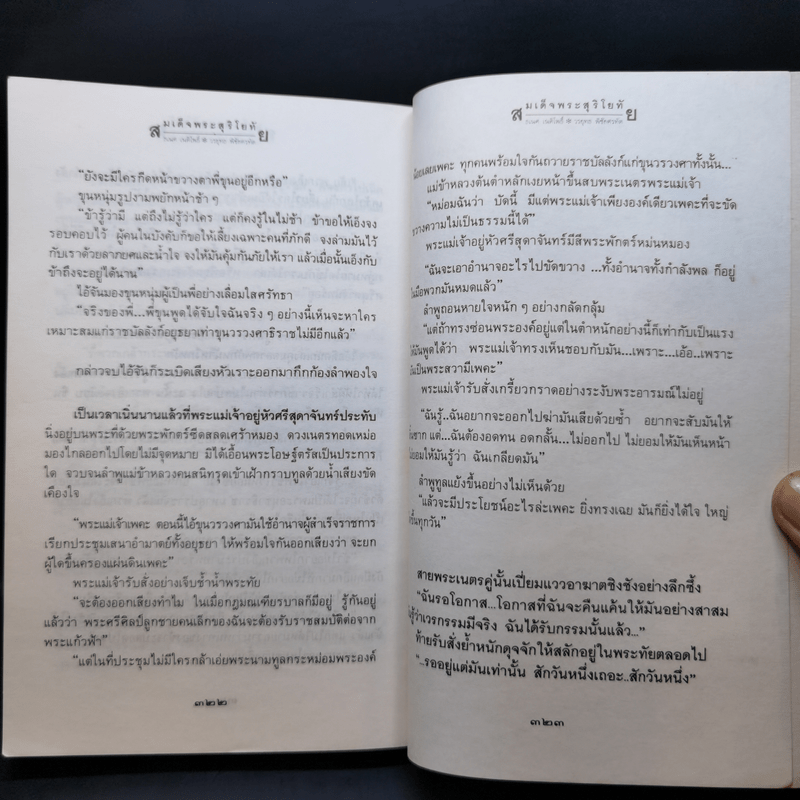 สมเด็จพระสุริโยทัย
“ยังจะมีใครกีดหน้าขวางตาพี่ขุนอยู่อีกหรือ”
ขุนหนุ่มรูปงามพยักหน้าช้า ๆ
“ข้ารู้ว่ามี แต่ถึงไม่รู้ว่าใคร แต่ก็คงรู้ในไม่ช้า ข้าขอให้เอ็งจง
รอบคอบไว้ ผู้คนในบังคับก็ขอให้เลี้ยงเฉพาะคนที่ภักดี จงล่ามมันไว้
กับเราด้วยลาภยศและน้ำใจ จงให้มันคุ้มกันภัยให้เรา แล้วเมื่อนั้นเอ็งกับ
ข้าถึงจะอยู่ได้นาน”
ไอ้จันมองขุนหนุ่มผู้เป็นพี่อย่างเลื่อมใสศรัทธา
“จริงของพี่...พี่ขุนพูดได้จับใจฉันจริง ๆ อย่างนี้เห็นจะหาใคร
เหมาะสมแก่ราชบัลลังก์อยุธยาเท่าขุนวรวงศาธิราชไม่มีอีกแล้ว”
กล่าวจบไอ้จันก็ระเบิดเสียงหัวเราะออกมากึกก้องลำพองใจ
เป็นเวลาเนิ่นนานแล้วที่พระแม่เจ้าอยู่หัวศรีสุดาจันทร์ประทับ
นิ่งอยู่บนพระที่ด้วยพระพักตร์ซีดสลดเศร้าหมอง ดวงเนตรทอดเหม่อ
มองไกลออกไปโดยไม่มีจุดหมาย มิได้เอื้อนพระโอษฐ์ตรัสเป็นประการ
ใด จวบจนลำพูแม่ข้าหลวงคนสนิทรุดเข้าเฝ้ากราบทูลด้วยน้ำเสียงขัด
เคืองใจ
“พระแม่เจ้าเพคะ ตอนนี้ไอ้ขุนวรวงศามันใช้อำนาจผู้สำเร็จราชการ
เรียกประชุมเสนาอำมาตย์ทั้งอยุธยา ให้พร้อมใจกันออกเสียงว่า จะยก
ผู้ใดขึ้นครองแผ่นดินเพคะ”
พระแม่เจ้ารับสั่งอย่างเจ็บช้ำน้ำพระทัย
“จะต้องออกเสียงทำไม ในเมื่อกฎมณเฑียรบาลก็มีอยู่ รู้กันอยู่
แล้วว่า พระศรีศิลป์ลูกชายคนเล็กของฉันจะต้องรับราชสมบัติต่อจาก
พระแก้วฟ้า”
“แต่ในที่ประชุมไม่มีใครกล้าเอ่ยพระนามทูลกระหม่อมพระองค์
๓๒๒
สมเด็จพระสุริโยทัย
เลยเพคะ ทุกคนพร้อมใจกันถวายราชบัลลังก์แก่ขุนวรวงศาทั้งนั้น...”
แม่ข้าหลวงต้นตำหลักเงยหน้าขึ้นสบพระเนตรพระแม่เจ้า
“หม่อมฉันว่า บัดนี้ มีแต่พระแม่เจ้าเพียงองค์เดียวเพคะที่จะขัด
ขวางความไม่เป็นธรรมนี้ได้”
พระแม่เจ้าอยู่หัวศรีสุดาจันทร์มีสีพระพักตร์หม่นหมอง
“ฉันจะเอาอำนาจอะไรไปขัดขวาง ...ทั้งอำนาจทั้งกำลังพล ก็อยู่
ในมือพวกมันหมดแล้ว”
ลำพูถอนหายใจหนัก ๆ อย่างกลัดกลุ้ม
“แต่ถ้าทรงซ่อนพระองค์อยู่แต่ในตำหนักอย่างนี้ก็เท่ากับเป็นแรง
พูดได้ว่า พระแม่เจ้าทรงเห็นชอบกับมัน...เพราะ...เอ้อ...เพราะ
เป็นพระสวามีเพคะ”
พระแม่เจ้ารับสั่งเกรี้ยวกราดอย่างระงับพระอารมณ์ไม่อยู่
“ฉันรู้..ฉันอยากจะออกไปฆ่ามันเสียด้วยซ้ำ อยากจะสับมันให้
แต่...ฉันต้องอดทน อดกลั้น...ไม่ออกไป ไม่ยอมให้มันเห็นหน้า
ให้มันรู้ว่า ฉันเกลียดมัน”
ลำพูทูลแย้งขึ้นอย่างไม่เห็นด้วย
“แล้วจะมีประโยชน์อะไรล่ะเพคะ ยิ่งทรงเฉย มันก็ยิ่งได้ใจ ใหญ่
ขึ้นทุกวัน”
สายพระเนตรคู่นั้นเปี่ยมแววอาฆาตชิงชังอย่างลึกซึ้ง
“ฉันรอโอกาส...โอกาสที่ฉันจะคืนแค้นให้มันอย่างสาสม
รู้ว่าเวรกรรมมีจริง ฉันได้รับกรรมนั้นแล้ว...”
ท้ายรับสั่งย้ำหนักดุจจักให้สลักอยู่ในพระทัยตลอดไป
“..รออยู่แต่มันเท่านั้น สักวันหนึ่งเถอะ..สักวันหนึ่ง”
๓๒๓